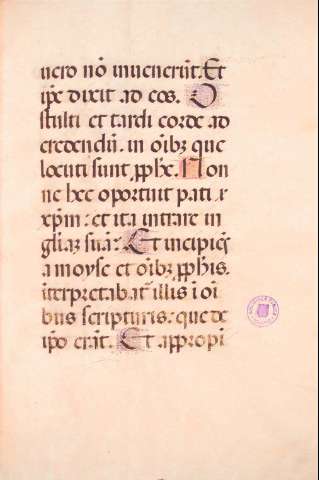 uero nō inuenerūt. Et
ip̄e dixit ad eos. O
stulti et tardi corde ad
credendū. in oīb; que
locuti sunt p̄ph̄e. Non
ne hec oportuit pati
xp̄m: et ita intrare in
gl̄iaz suā: Et incipiēs
a moyse et oīb; p̄ph̄is.
īterpretabat᷑ illis ī oī
bus scripturis: que de
ip̄o erāt. Et appropi